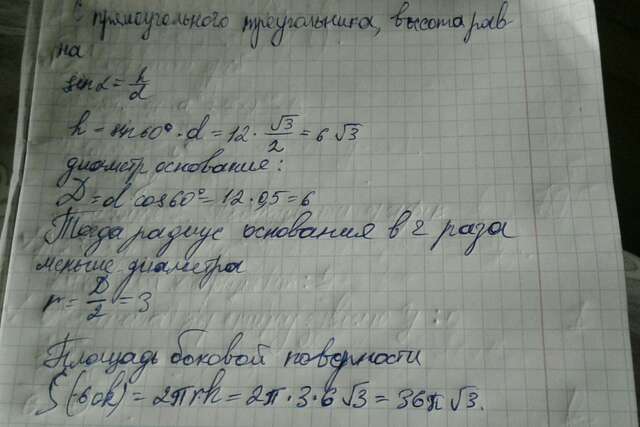 С прямоугольного треугольника, высота рав-
на
sin α = h/d
h = sin 60° · d = 12 · √3/2 = 6√3
диаметр основание:
D = d cos 60° = 12 · 0,5 = 6
Тогда радиус основания в 2 раза
меньше диаметра
r = D/2 = 3
Площадь боковой поверности
S(бок) = 2πrh = 2π · 3 · 6√3 = 36π√3.